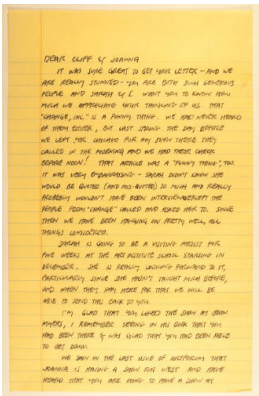 DEAR CLIFF & JOANNA
IT WAS SURE GREAT TO GET YOUR LETTER - AND WE
ARE REALLY STUNNED - YOU ARE BOTH SUCH GENEROUS
PEOPLE AND SARAH & I WANT YOU TO KNOW HOW
MUCH WE APPRECIATE YOUR THINKING OF US. THAT
"CHANGE, INC." IS A FUNNY THING. WE HAD NEVER HEARD
OF THEM EITHER, BUT LAST SPRING THE DAY BEFORE
WE LEFT FOR CHICAGO FOR MY SHOW THERE THEY
CALLED IN THE MORNING AND WE HAD THEIR CHECK
BEFORE NOON! THAT ARTICLE WAS A "FUNNY THING", TOO.
IT WAS VERY EMBARRASSING - SARAH DIDN'T KNOW SHE
WOULD BE QUOTED (AND MIS-QUOTED) SO MUCH AND REALLY
PROBABLY WOULDN'T HAVE BEEN INTERVIEWED EXCEPT THE
PEOPLE FROM "CHANGE" CALLED AND ASKED HER TO. SINCE
THEN WE HAVE BEEN HANGING ON PRETTY WELL, ALL
THINGS CONSIDERED.
SARAH IS GOING TO BE A VISITING ARTIST FOR
FIVE WEEKS AT THE ART INSTITUTE SCHOOL STARTING IN
DECEMBER. SHE IS REALLY LOOKING FORWARD TO IT,
PARTICULARLY SINCE SHE HASN'T TAUGHT MUCH BEFORE,
AND WHEN THEY PAY HERE FOR THAT WE WILL BE
ABLE TO SEND THIS BACK TO YOU.
I'M GLAD THAT YOU LIKED THE SHOW AT JOHN
MYERS, I REMEMBER SEEING IN HIS BOOK THAT YOU
HAD BEEN THERE & WAS GLAD THAT YOU HAD BEEN ABLE
TO GET DOWN.
WE SAW IN THE LAST ISSUE OF ARTFORUM THAT
JOANNA IS HAVING A SHOW OUT WEST AND HAVE
HEARD THAT YOU ARE GOING TO HAVE A SHOW AT